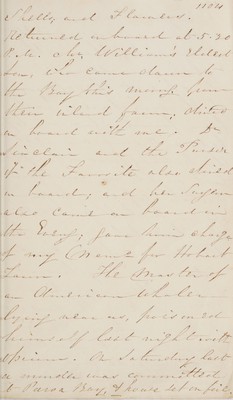 1104
Shells, and Flowers.
Returned on board at 5.30
P.M. Mr William's eldest
son, who came down to
the Bay this morng from
their inland farm, dined
on board with me. Dr
Sinclair and the Purser
of the Favorite also dined
on board, and her Surgeon
also came on board in
the Eveng, gave him charge
of my for Hobart
Town. The Master of
an American Whaler
lying near us, poisoned
himself last night with
opium. On Saturday last
a murder was committed
to Paroa Bay, & house set on fire,